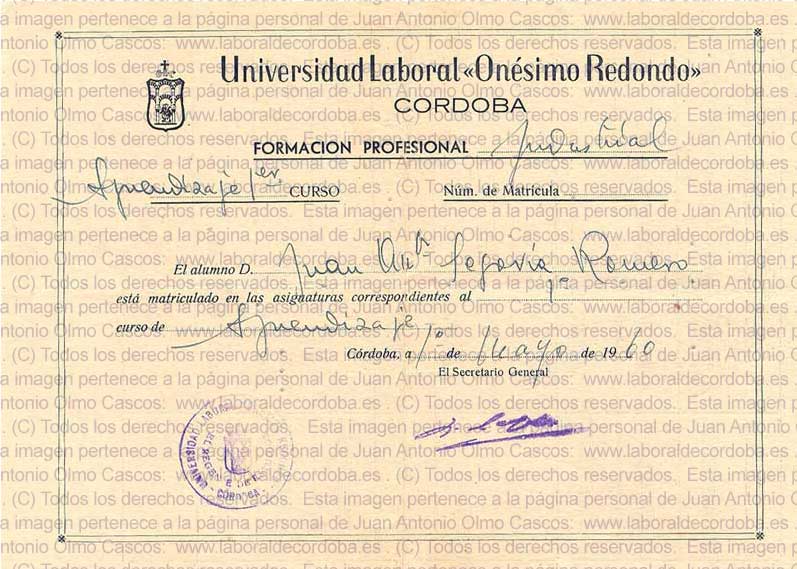 Universidad Laboral «Onésimo Redondo»
CORDOBA
FORMACION PROFESIONAL Industrial
Aprendizaje 1er. CURSO Núm. de Matrícula
El alumno D. Juan Antº Segovia Romero
está matriculado en las asignaturas correspondientes al 1º
curso de Aprendizaje
Córdoba, a 1º de Mayo de 1960
El Secretario General
UNIVERSIDAD LABORAL
CORDOBA
Esta imagen pertenece a la página personal de Juan Antonio Olmo Cascos: www.laboraldecordoba.es. (C) Todos los derechos reservados.